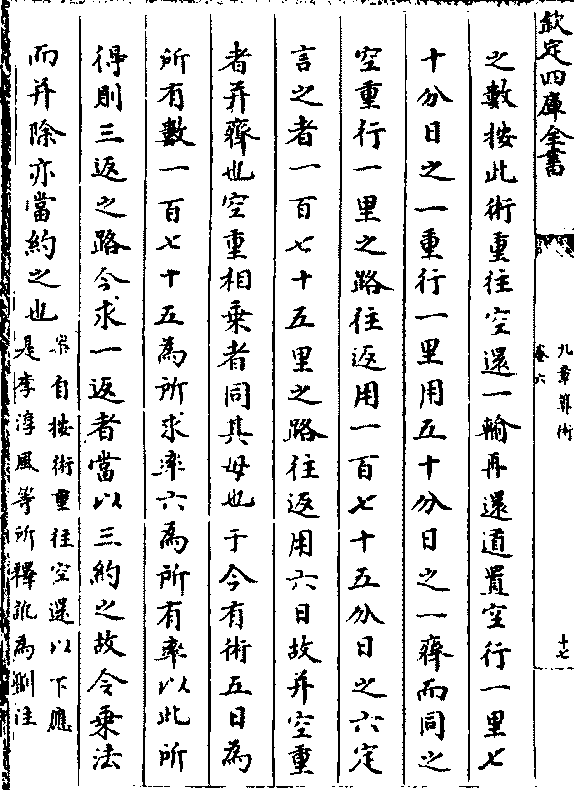 欽定四庫全書
九章算術
卷六
十七
之數按此術重往空還一輸再還道置空行一里七
十分日之一重行一里用五十分日之一齊而同之
空重行一里之路往返用一百七十五分日之六定
言之者一百七十五里之路往返用六日故并空重
者并齊也空重相乗者同其母也于今有術五日為
所有數一百七十五為所求率六為所有率以此所
得則三返之路今求一返者當以三約之故令乗法
而并除亦當約之也
案自按術重往空還以下應
是李淳風等所釋訛為劉注